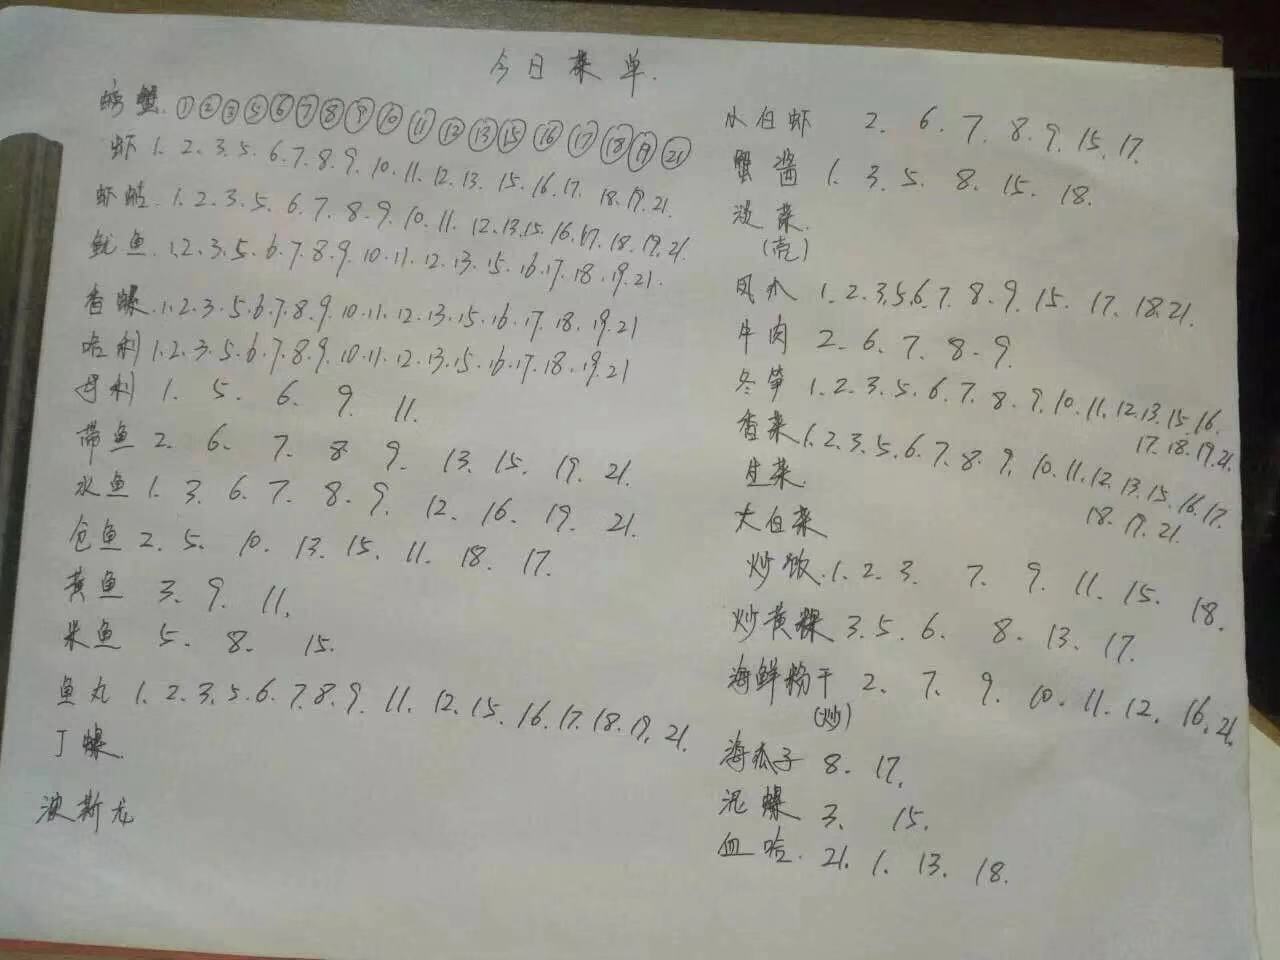 今日菜单.
螃蟹.①②③⑤⑥⑦⑧⑨⑩⑪⑫⑬⑮⑯⑰⑱⑲㉑
虾 1. 2. 3. 5. 6. 7. 8. 9. 10. 11. 12. 13. 15. 16. 17. 18. 19. 21.
虾蛄. 1. 2. 3. 5. 6. 7. 8. 9. 10. 11. 12. 13. 15. 16. 17. 18. 19. 21.
鱿鱼. 1. 2. 3. 5. 6. 7. 8. 9. 10. 11. 12. 13. 15. 16. 17. 18. 19. 21.
香螺. 1. 2. 3. 5. 6. 7. 8. 9. 10. 11. 12. 13. 15. 16. 17. 18. 19. 21
哈利 1. 2. 3. 5. 6. 7. 8. 9. 10. 11. 12. 13. 15. 16. 17. 18. 19. 21
丹利 1. 5. 6. 9. 11.
带鱼 2. 6. 7. 8. 9. 13. 15. 19. 21.
水鱼 1. 3. 6. 7. 8. 9. 12. 16. 19. 21.
仓鱼 2. 5. 10. 13. 15. 11. 18. 17.
黄鱼 3. 9. 11.
米鱼 5. 8. 15.
鱼丸 1. 2. 3. 5. 6. 7. 8. 9. 11. 12. 15. 16. 17. 18. 19. 21.
丁螺.
波斯龙
水白虾 2. 6. 7. 8. 9. 15. 17.
蟹酱 1. 3. 5. 8. 15. 18.
淡菜.
(壳)
风爪 1. 2. 3. 5. 6. 7. 8. 9. 15. 17. 18. 21.
牛肉 2. 6. 7. 8. 9.
冬笋 1. 2. 3. 5. 6. 7. 8. 9. 10. 11. 12. 13. 15. 16.
17. 18. 19. 21.
香菜 1. 2. 3. 5. 6. 7. 8. 9. 10. 11. 12. 13. 15. 16. 17.
18. 19. 21.
生菜.
大白菜
炒饭. 1. 2. 3. 7. 9. 11. 15. 18.
炒黄粿 3. 5. 6. 8. 13. 17.
海鲜粉干 2. 7. 9. 10. 11. 12. 16. 21.
(炒)
海瓜子 8. 17.
泥螺 3. 15.
血哈. 21. 1. 13. 18.